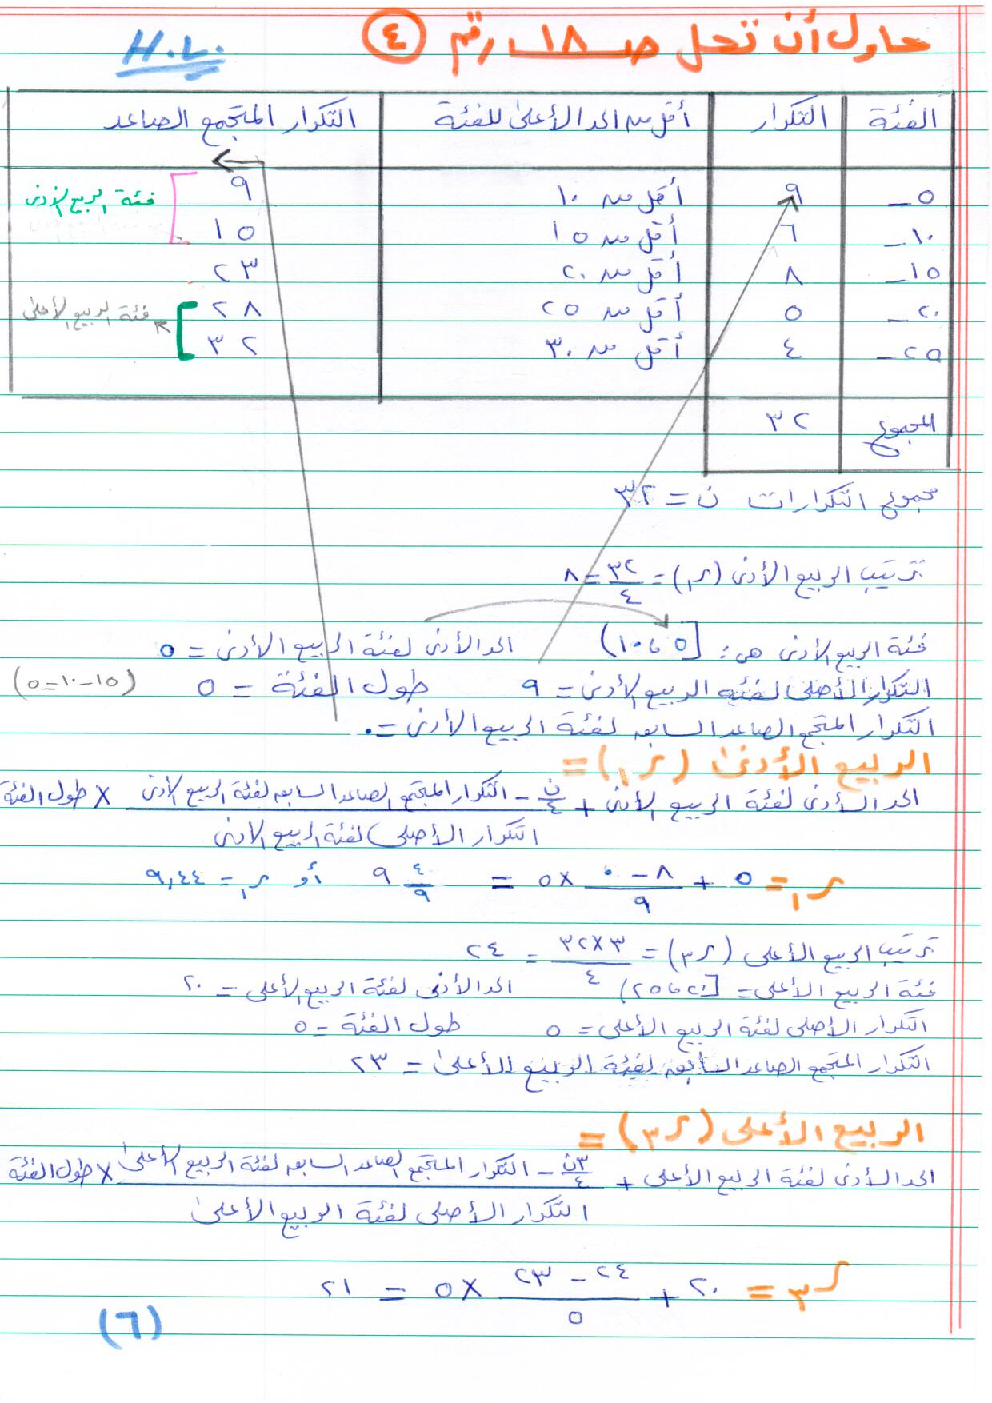 حاول أن تحل صـ ١٨ـ رقم ٤
H.L.
الفئة التكرار أقل من الحد الأعلى للفئة التكرار المتجمع الصاعد
٥ـ ٩ أقل من ١٠ ٩ فئة الربيع الأدنى
١٠ـ ٦ أقل من ١٥ ١٥
١٥ـ ٨ أقل من ٢٠ ٢٣
٢٠ـ ٥ أقل من ٢٥ ٢٨ فئة الربيع الأعلى
٢٥ـ ٤ أقل من ٣٠ ٣٢
المجموع ٣٢
مجموع التكرارات ن = ٣٢
ترتيب الربيع الأدنى (ر١) = ٣٢/٤ = ٨
فئة الربيع الأدنى هى: [٥ ، ١٠) الحد الأدنى لفئة الربيع الأدنى = ٥
التكرار الأصلى لفئة الربيع الأدنى = ٩ طول الفئة = ٥ (١٥ - ١٠ = ٥)
التكرار المتجمع الصاعد السابق لفئة الربيع الأدنى = ٠
الربيع الأدنى (ر١) =
الحد الأدنى لفئة الربيع الأدنى + ن/٤ - التكرار المتجمع الصاعد السابق لفئة الربيع الأدنى × طول الفئة
التكرار الأصلى لفئة الربيع الأدنى
ر١ = ٥ + (٨ - ٠)/٩ × ٥ = ٩ ٤/٩ أو ر١ = ٩,٤٤
ترتيب الربيع الأعلى (ر٣) = ٣×٣٢/٤ = ٢٤
فئة الربيع الأعلى = [٢٠ ، ٢٥) الحد الأدنى لفئة الربيع الأعلى = ٢٠
التكرار الأصلى لفئة الربيع الأعلى = ٥ طول الفئة = ٥
التكرار المتجمع الصاعد السابق لفئة الربيع الأعلى = ٢٣
الربيع الأعلى (ر٣) =
الحد الأدنى لفئة الربيع الأعلى + ٣ن/٤ - التكرار المتجمع الصاعد السابق لفئة الربيع الأعلى × طول الفئة
التكرار الأصلى لفئة الربيع الأعلى
ر٣ = ٢٠ + (٢٤ - ٢٣)/٥ × ٥ = ٢١
(٦)